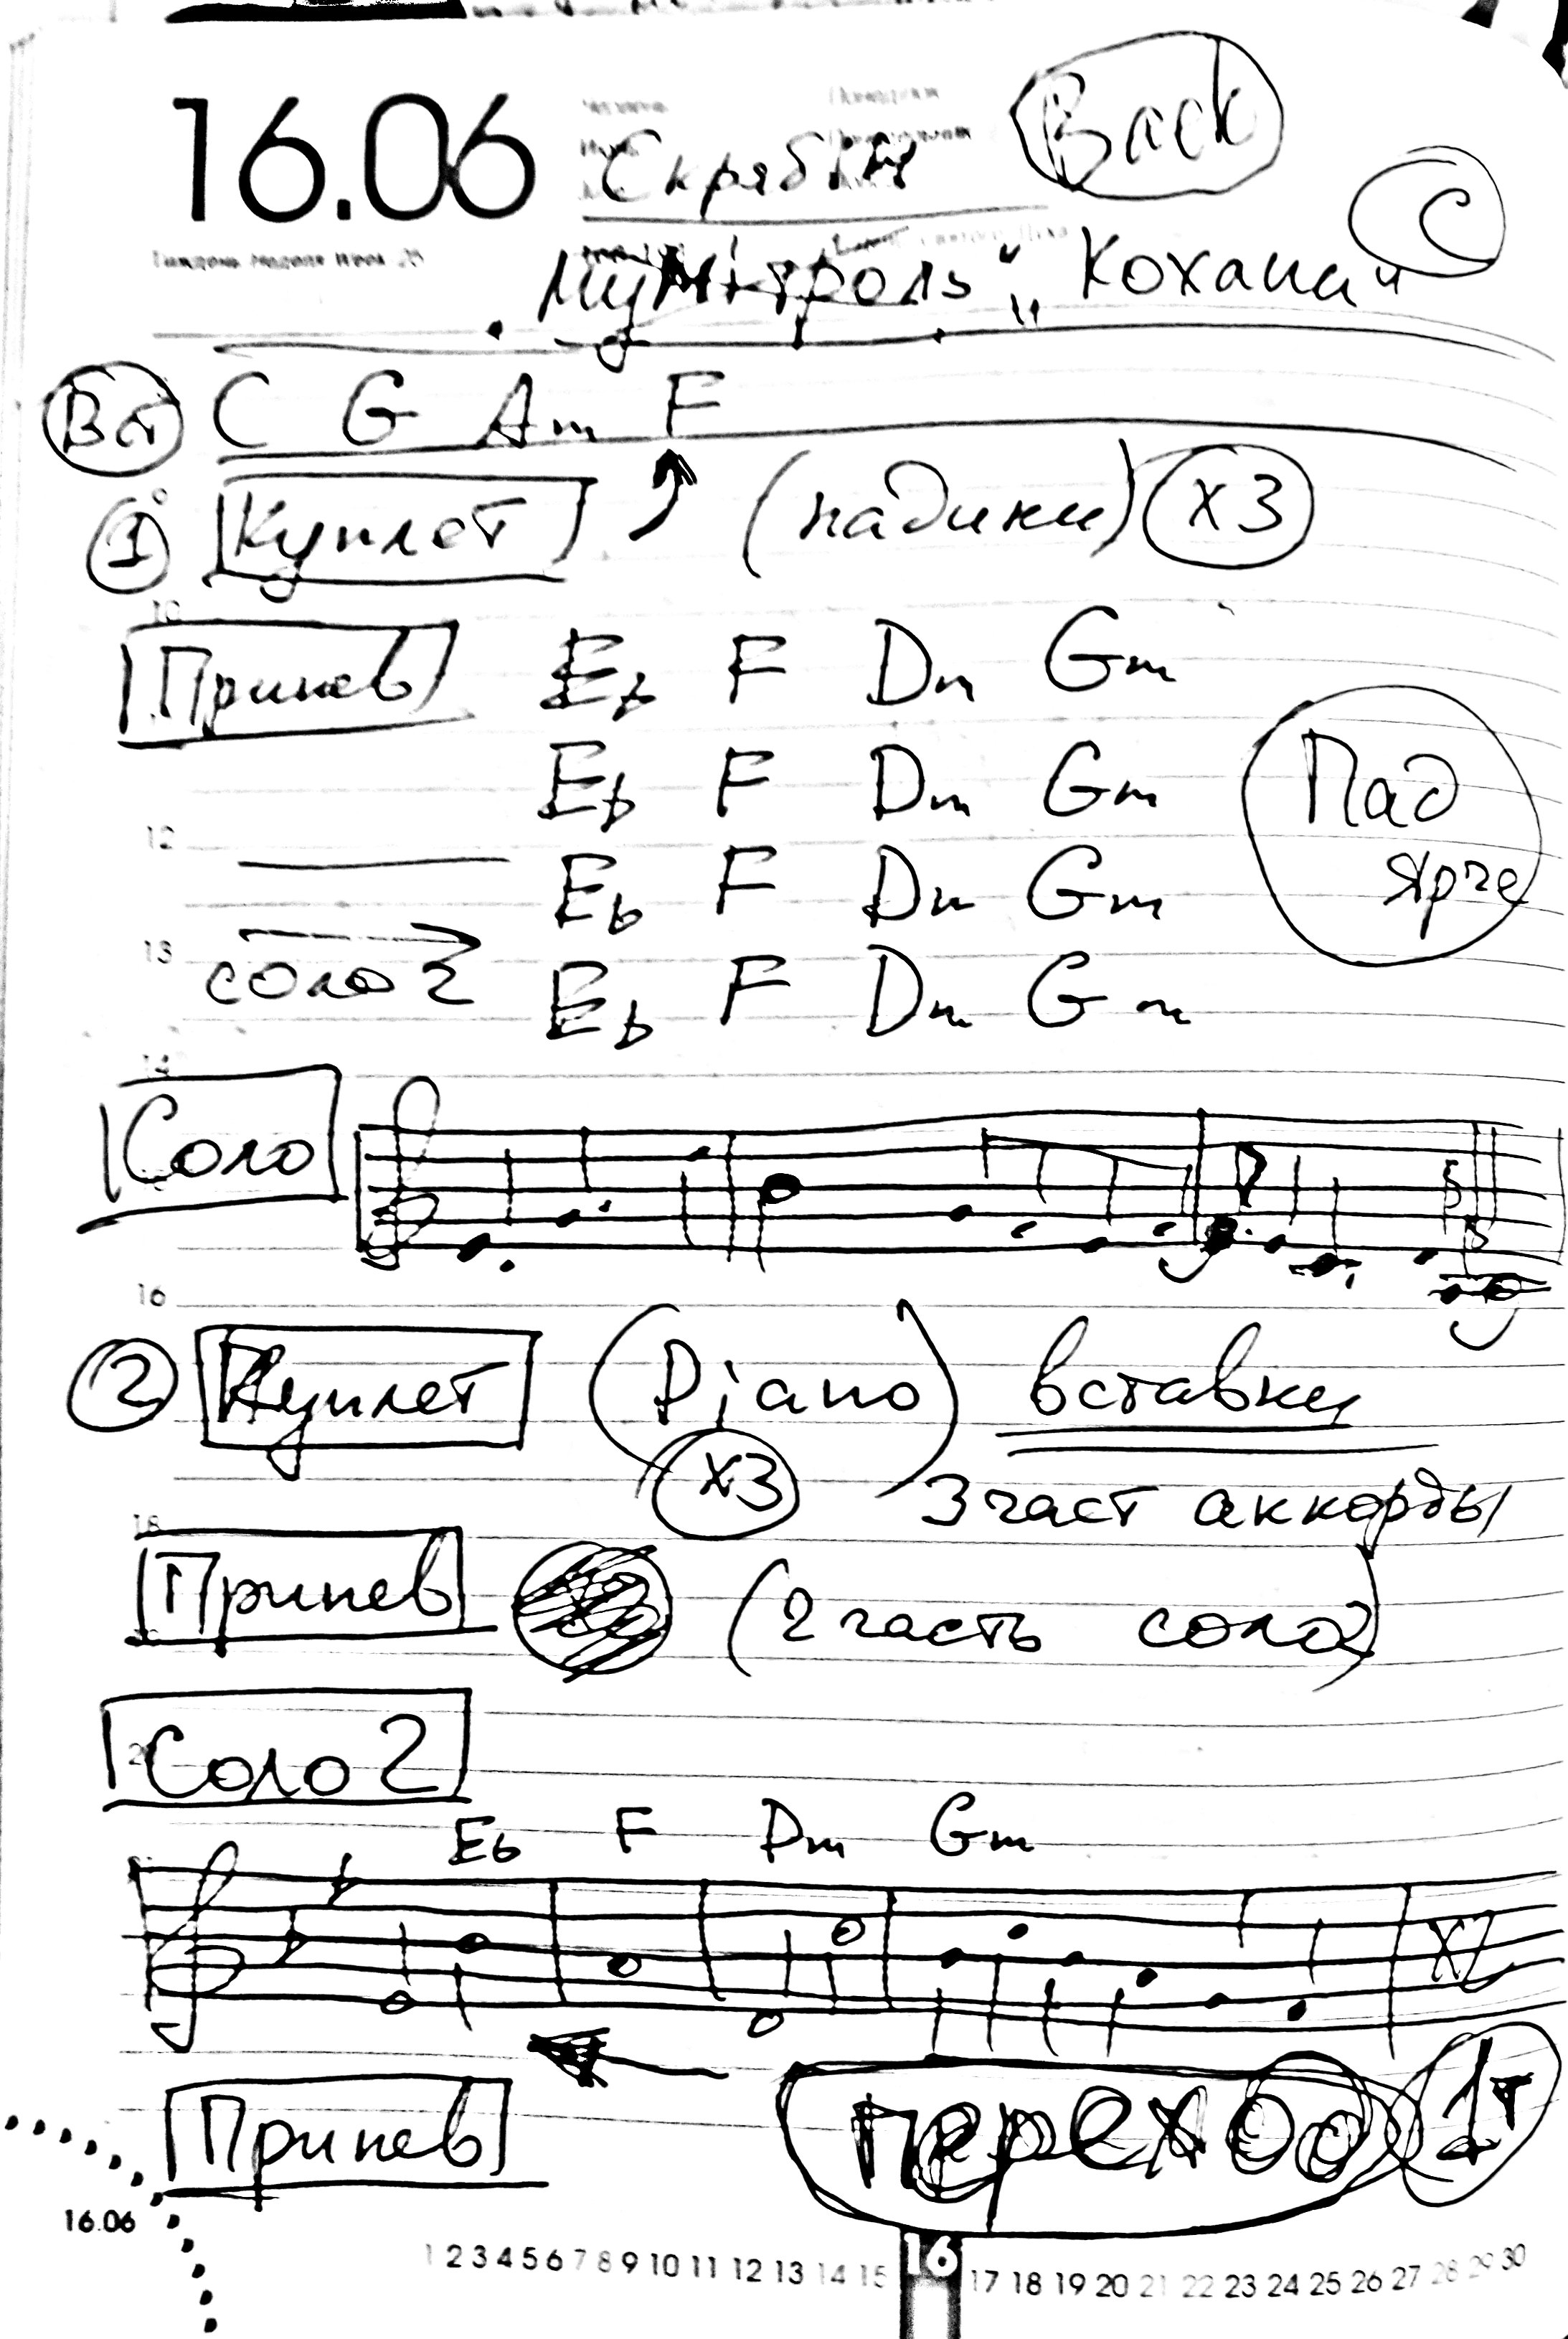 16.06
Скрябін Back
C
"Мумітроль" „Кохана"
Вст C G Am F
1 Куплет (падики) x3
10
Припев Eb F Dm Gm
Eb F Dm Gm
Пад
ярче
12
Eb F Dm Gm
13
соло 2 Eb F Dm Gm
14
Соло
16
2 Куплет (Piano) вставки
x3 3 част аккорды
18
Припев (2 часть соло)
Соло 2
Eb F Dm Gm
Припев переход 1т
16.06
1 2 3 4 5 6 7 8 9 10 11 12 13 14 15 16 17 18 19 20 21 22 23 24 25 26 27 28 29 30